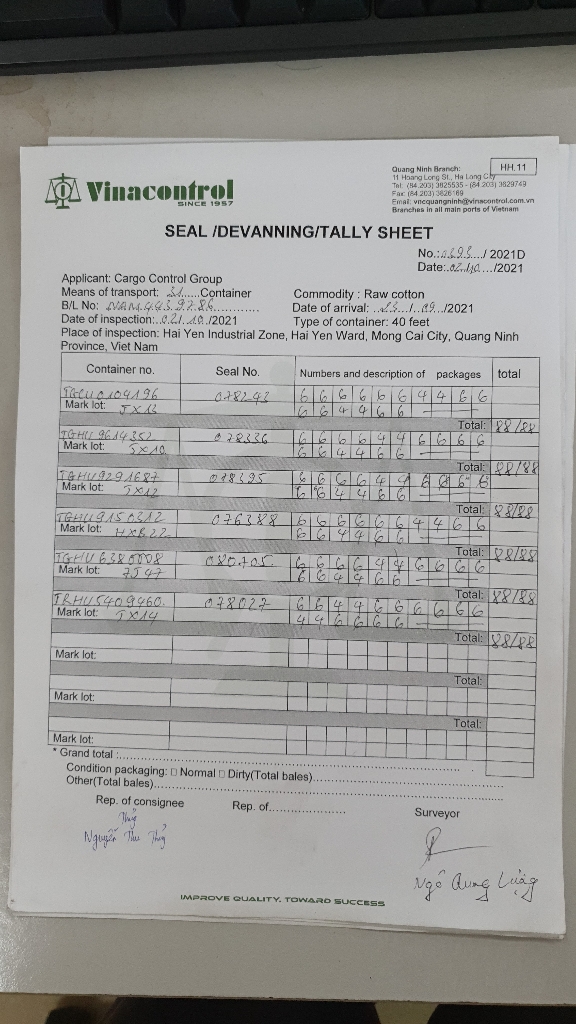 Vinacontrol
SINCE 1957
Quang Ninh Branch:
HH.11
11 Hoang Long St., Ha Long City
Tel: (84.203) 3825535 - (84.203) 3629749
Fax: (84.203) 3826169
Email: vncquangninh@vinacontrol.com.vn
Branches in all main ports of Vietnam
SEAL /DEVANNING/TALLY SHEET
No.: / 2021D
Date: 02/10 /2021
Applicant: Cargo Control Group
Means of transport: 31 Container
Commodity : Raw cotton
B/L No:
Date of arrival: 23 / 09 /2021
Date of inspection: 02/ 10 /2021
Type of container: 40 feet
Place of inspection: Hai Yen Industrial Zone, Hai Yen Ward, Mong Cai City, Quang Ninh
Province, Viet Nam
Container no. Seal No. Numbers and description of packages total
TGCU0104196 078243 6 6 6 6 6 6 4 4 6 6
Mark lot: JX13 6 6 4 4 6 6
Total: 88/88
TGHU9614352 078336 6 6 6 6 4 4 6 6 6 6
Mark lot: JX10 6 6 4 4 6 6
Total: 88/88
TGHU9291687 078395 6 6 6 6 4 4 6 6 6 6
Mark lot: JX12 6 6 4 4 6 6
Total: 88/88
TGHU9150312 076388 6 6 6 6 6 6 4 4 6 6
Mark lot: HXB22 6 6 4 4 6 6
Total: 88/88
TGHU6380008 080705 6 6 6 6 4 4 6 6 6 6
Mark lot: 7547 6 6 4 4 6 6
Total: 88/88
TRHU5409460 078027 6 6 4 4 6 6 6 6 6 6
Mark lot: JX14 4 4 6 6 6 6
Total: 88/88
Mark lot:
Total:
Mark lot:
Total:
Mark lot:
* Grand total :
Condition packaging: □ Normal □ Dirty(Total bales)
Other(Total bales)
Rep. of consignee Rep. of Surveyor
Thủy
Nguyễn Thu Thủy
Ngô Quang
IMPROVE QUALITY, TOWARD SUCCESS